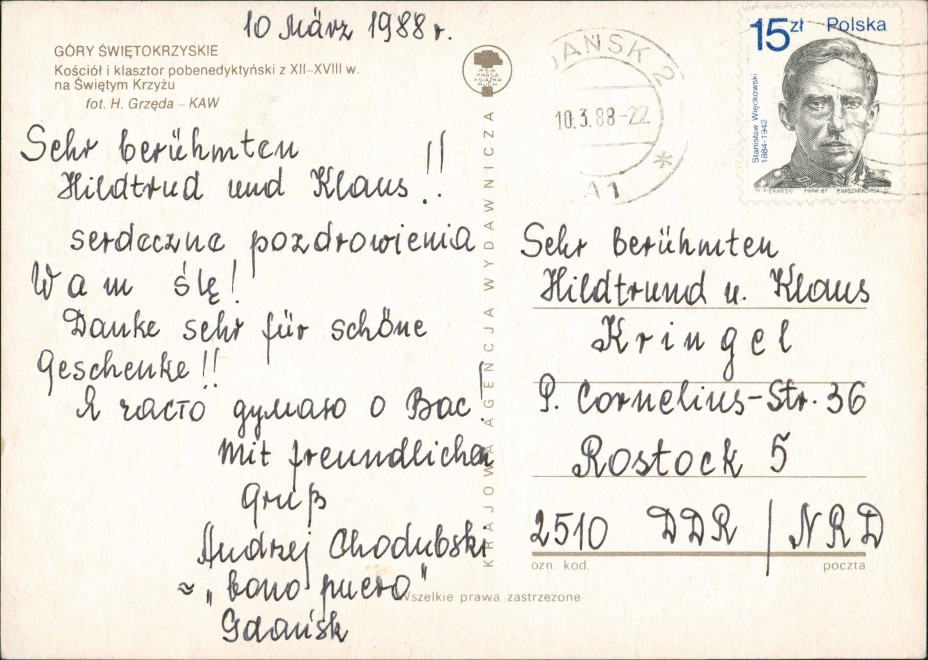 10 März 1988 r.
GÓRY ŚWIĘTOKRZYSKIE
Kościół i klasztor pobenedyktyński z XII–XVIII w.
na Świętym Krzyżu
fot. H. Grzęda – KAW
Sehr berühmten
Hildtrud und Klaus!!
serdeczne pozdrowienia
Wam ślę!
Danke sehr für schöne
Geschenke!!
Я часто думаю о Вас!
Mit freundlichen
Gruß
Andrzej Chodubski
≈ „bono puero"
Gdańsk
KRAJOWA AGENCJA WYDAWNICZA
Wszelkie prawa zastrzeżone
GDAŃSK 2
10.3.88-22
A1
15 zł Polska
Stanisław Więckowski
1884-1942
PWPW 87
Sehr berühmten
Hildtrund u. Klaus
Kringel
P. Cornelius-Str. 36
Rostock 5
2510 DDR / NRD
ozn. kod. poczta